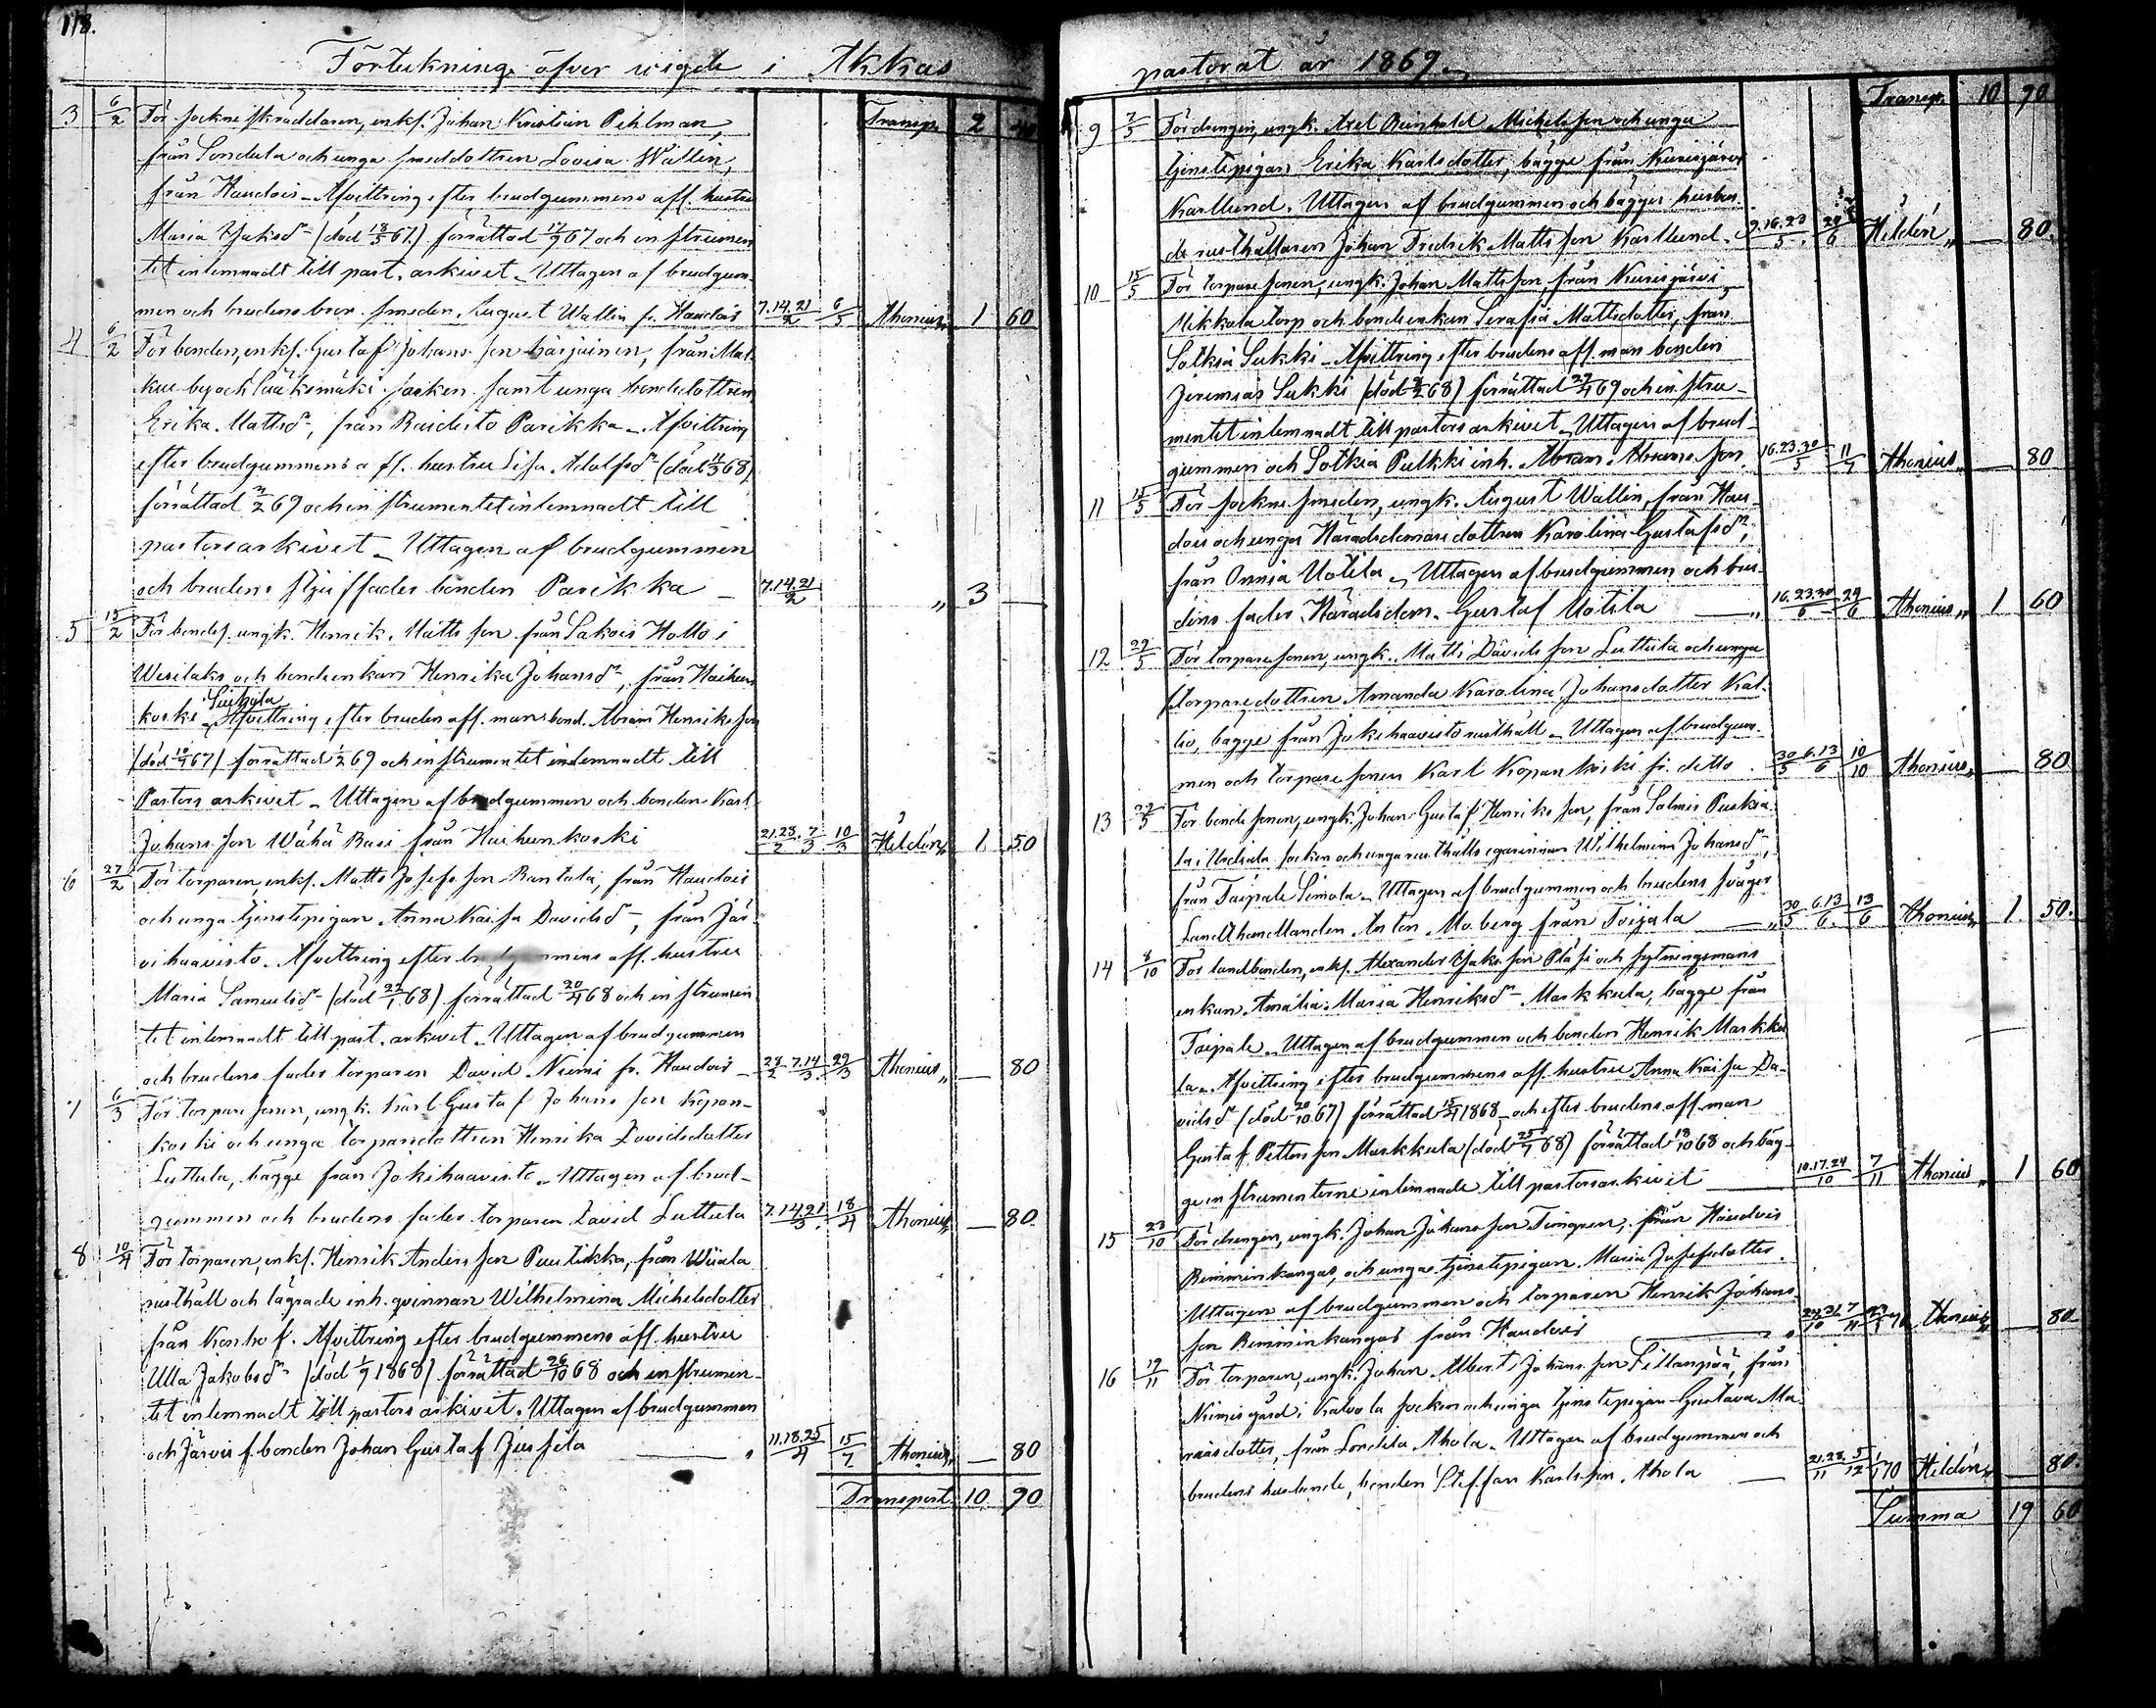 118.
Förteckning öfver vigde i Akkas
Transp. 2 40
3 6/2 För sockneskräddaren, enkl. Johan Kristian Pihlman,
från Sondula och unga smeddottren Lovisa Wallin,
från Haudois - Afvittring efter brudgummens afl. hustru
Maria Jaksdr (död 18/5 67.) förrättad 17/9 67 och instrumen
tet inlemnadt till past. arkivet. Uttagen af brudgum-
men och brudens bror smeden August Wallin fr. Haudois 7.14.21/2 6/5 Ahonius 1 60
4 6/2 För bonden, enkl. Gustaf Johans son Härjäinen, från Mat-
kue by och Sääksmäki socken samt unga bondedottren
Erika Mattsdr, från Raidisto Parikka - Afvittring
efter brudgummens afl. hustru Lisa Adolfsdr (död 11/3 68)
förrättad 2/2 69 och instrumentet inlemnadt till
pastorsarkivet - Uttagen af brudgummen
och brudens stjuffader bonden Parikka - 7.14.21/2 „ 3 —
5 15/2 För bondes. ungk. Henrik Matts son från Sakois Hollo i
Wesilaks och bondeenkan Henrika Johansdr, från Haihun
koski Suikola - Afvittring efter bruden afl. man bond. Abram Henriks son
(död 10/4 67) förrättad 1/2 69 och instrumentet inlemnadt till
Pastors arkivet - Uttagen af brudgummen och bonden Karl
Johans son Wähä Rasi från Haihunkoski 21.28/2 7/3 10/3 Heldén 1. 50
6 27/2 För torparen, enkl. Matts Josefs son Rantala, från Haudois
och unga tjenstepigan Anna Kaisa Davidsdr, från Jär-
vihaavisto. Afvittring efter brudgummens afl. hustru
Maria Samuelsdr (död 22/1 68) förrättad 20/4 68 och instrumen
tet inlemnadt till past. arkivet. Uttagen af brudgummen
och brudens fader torparen David Niemi fr. Haudois - 28/2 7.14/3 29/3 Ahonius „ — 80
7 6/3 För torparesonen, ungk. Karl Gustaf Johans son Kopan-
koski och unga torparedottren Henrika Davidsdotter
Luttula, bägge från Jokihaavisto - Uttagen af brud-
gummen och brudens fader torparen David Luttula 7.14.21/3. 18/4 Ahonius — 80.
8 10/4 För torparen, enkl. Henrik Anders son Puutikka, från Wiiala
rusthåll och lägrade inh. qvinnan Wilhelmina Michelsdotter
från Korhof. Afvittring efter brudgummens afl. hustru
Ulla Jakobsdr (död 1/7 1868) förrättad 26/10 68 och instrumen-
tet inlemnadt till pastors arkivet. Uttagen af brudgummen
och Järvis f. bonden Johan Gustaf Jusfila „ 11.18.25/4 15/7 Ahonius — 80
Transport 10 90
pastorat år 1869.
Transp. 10 90
9 7/5 För drengen, ungk. Axel Reinhold Michels son och unga
tjenstepigan Erika Karlsdotter, bägge från Kurisjärvi
Karllund. Uttagen af brudgummen och bägges husbon-
de rusthållaren Johan Fredrik Matts son Karllund. 9.16.23/5. 24/6 Heldén „ — 80.
10 15/5 För torparesonen, ungk. Johan Mattsson, från Kurisjärvi
Mikkola torp och bondeenkan Serafia Mattsdotter, från
Sotkia Sukki - Afvittring efter brudens afl. man bonden
Jeremias Sukki (död 9/2 68) förrättad 27/4 69 och instru-
mentet inlemnadt till pastorsarkivet - Uttagen af brud-
gummen och Sotkia Pulkki inh. Abram Abrams son 16.23.30/5 11/7 Ahonius „ — 80
11 15/5 För sockne smeden, ungk. August Wallin, från Hau-
dois och unga Häradsdomaredottren Karolina Gustafsdr,
från Onnia Uotila - Uttagen af brudgummen och bru-
dens fader Häradsdom. Gustaf Uotila „ 16.23.30/6 29/6 Ahonius „ 1 60
12 29/5 För torparesonen, ungk. Matti Davids son Luttula och unga
torparedottren Amanda Karolina Johansdotter Kal-
lio, bägge från Jokihaavisto rusthåll - Uttagen af brudgum-
men och torparesonen Karl Kopankoski fr. detto 30/5 6.13/6 10/10 Ahonius „ — 80
13 29/5 För bondesonen, ungk. Johan Gustaf Henriks son, från Salmis Puskia
la i Urdiala socken och unga rusthålls egarinnan Wilhelmina Johansdr,
från Taipale Simola - Uttagen af brudgummen och brudens svåger
Landthandlanden Anton Moberg från Toijala „ 30/5 6.13/6. 13/6 Ahonius „ 1. 50.
14 8/10 För landbonden, enkl. Alexander Jaks son Pläsi och sytningsmans
enkan Amalia Maria Henriksdr Markkula, bägge från
Taipale - Uttagen af brudgummen och bonden Henrik Markku
la - Afvittring efter brudgummens afl. hustru Anna Kaisa Da-
vidsdr (död 20/10 67) förrättad 15/4 1868 - och efter brudens afl. man
Gustaf Petters son Markkula (död 25/7 68) förrättad 18/10 68 och bäg-
ge instrumenterne inlemnade till pastorsarkivet 10.17.24/10 7/11 Ahonius „ 1 60
15 23/10 För drengen, ungk. Johan Johans son Timgren, från Haudois
Rimminkangas, och unga tjenstepigan Maria Josefsdotter.
Uttagen af brudgummen och torparen Henrik Johans-
son Rimminkangas från Haudois „ 24.31/10 7/11 23/1 70 Ahonius — 80
16 19/11 För torparen, ungk. Johan Albert Johans son Sillanpää, från
Niemis gård i Kalvola socken och unga tjenstepigan Gustava Ma-
riasdotter, från Londila Ahola - Uttagen af brudgummen och
brudens husbonde, bonden Steffan Karlsson Ahola — 21.28/11 5/12 1/1 70 Heldén „ — 80.
Summa 19 60